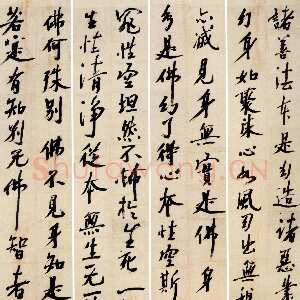 諸善法本是幻造諸惡業
幻身如聚沫心如風幻出無
滅見身無實是佛身
是佛幻了得心本性空斯
性空坦然不怖於生死一
生性清淨從本無生无
佛何殊別佛不見身知是
若是有知別无佛智者